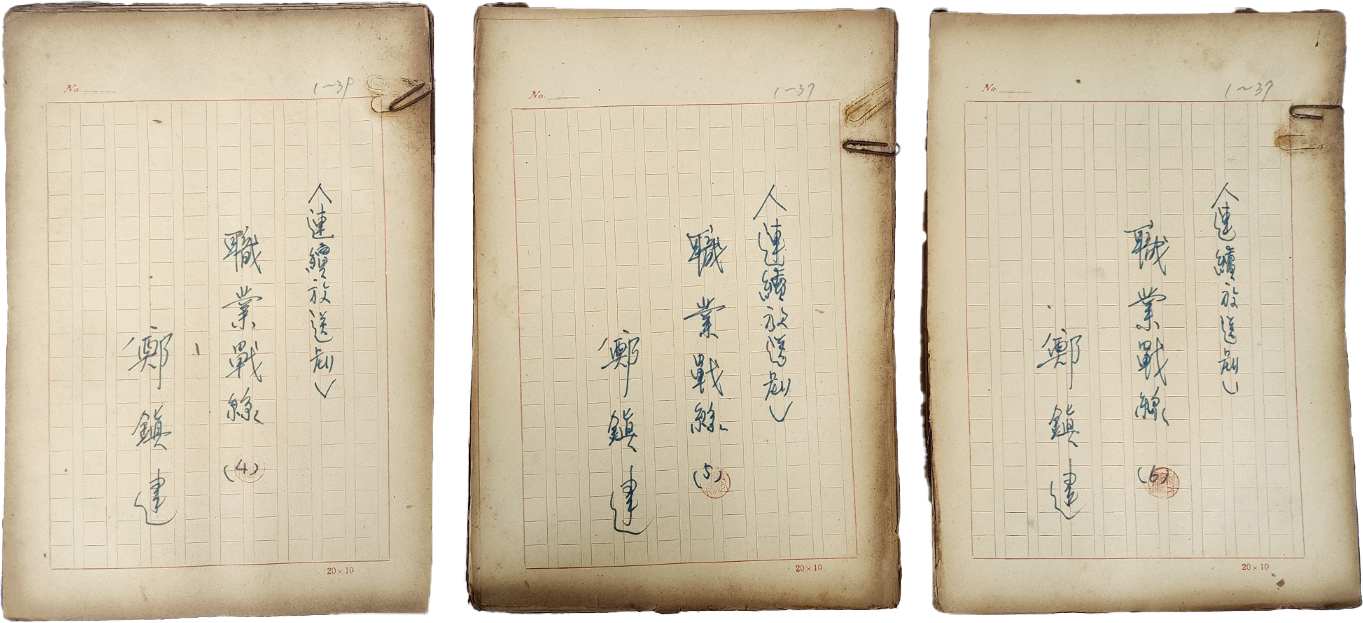 No.
1~39
〈連續放送劇〉
職業戰線 (4)
鄭鎮建
20×10
No.
1~37
〈連續放送劇〉
職業戰線 (5)
鄭鎮建
20×10
No.
1~37
〈連續放送劇〉
職業戰線 (6)
鄭鎮建
20×10